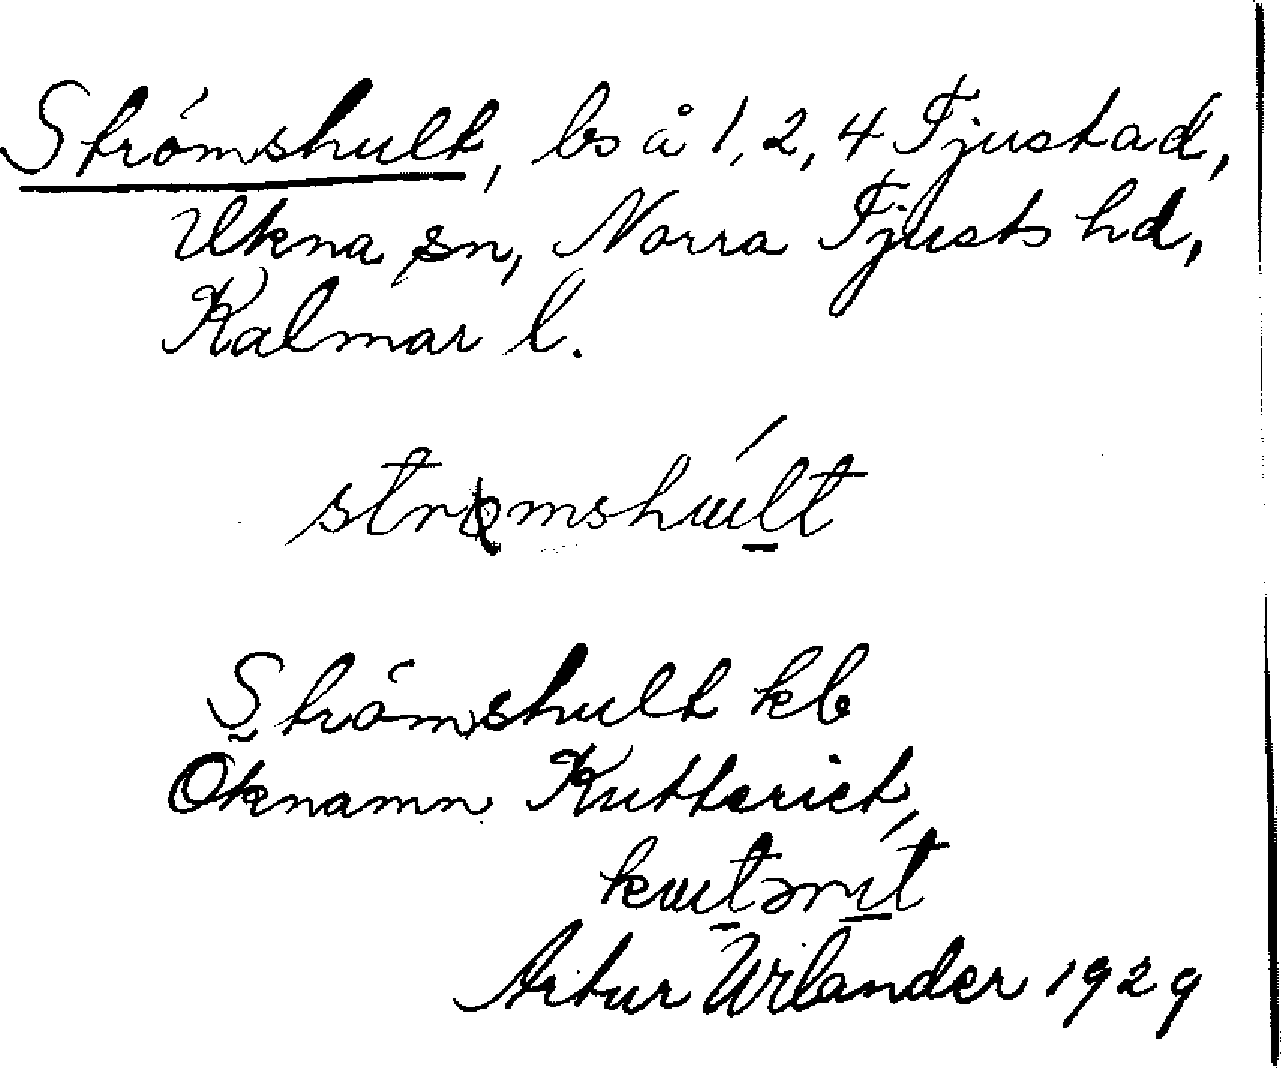 Strömshult, ls å 1, 2, 4 Tjustad,
Ukna sn, Norra Tjusts hd,
Kalmar l.
Strömshult kb
Öknamn Kutteriet,
Artur Wilander 1929